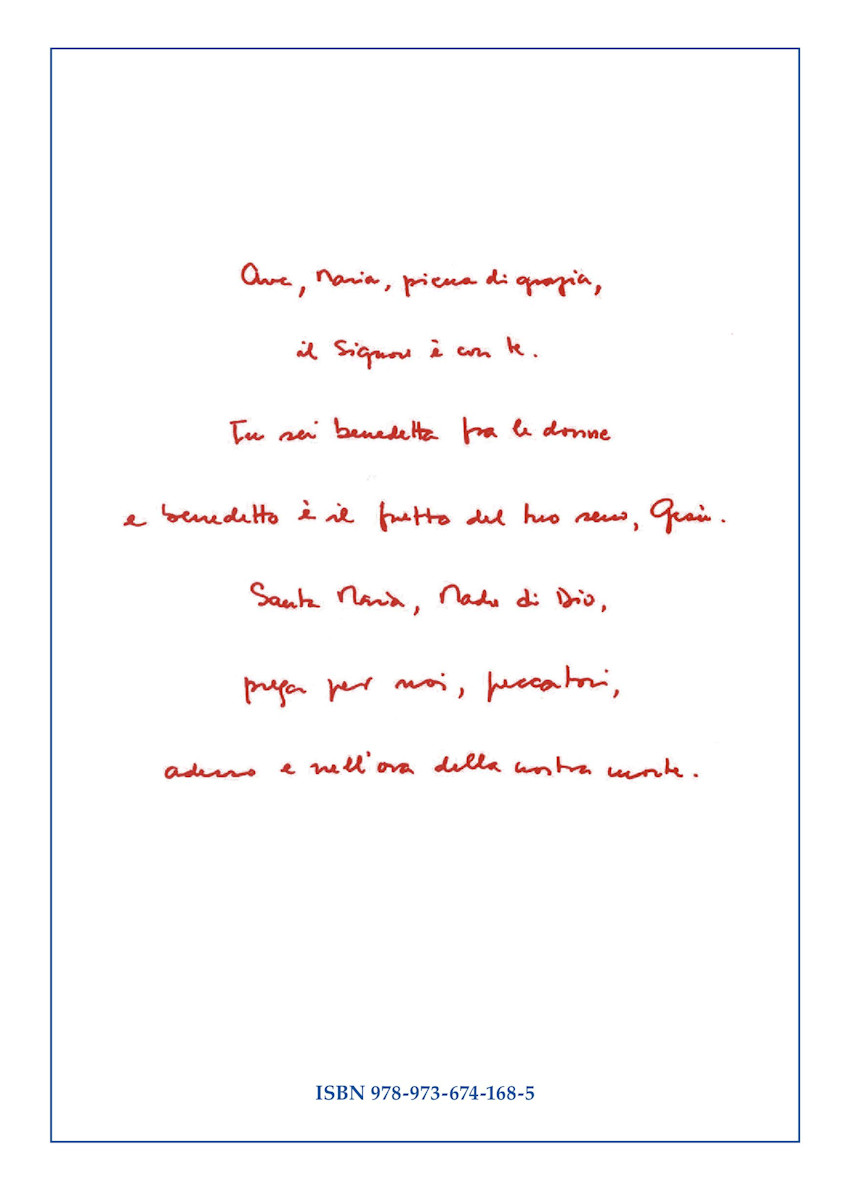 Ave, Maria, piena di grazia,
il Signore è con te.
Tu sei benedetta fra le donne
e benedetto è il frutto del tuo seno, Gesù.
Santa Maria, Madre di Dio,
prega per noi, peccatori,
adesso e nell'ora della nostra morte.
ISBN 978-973-674-168-5